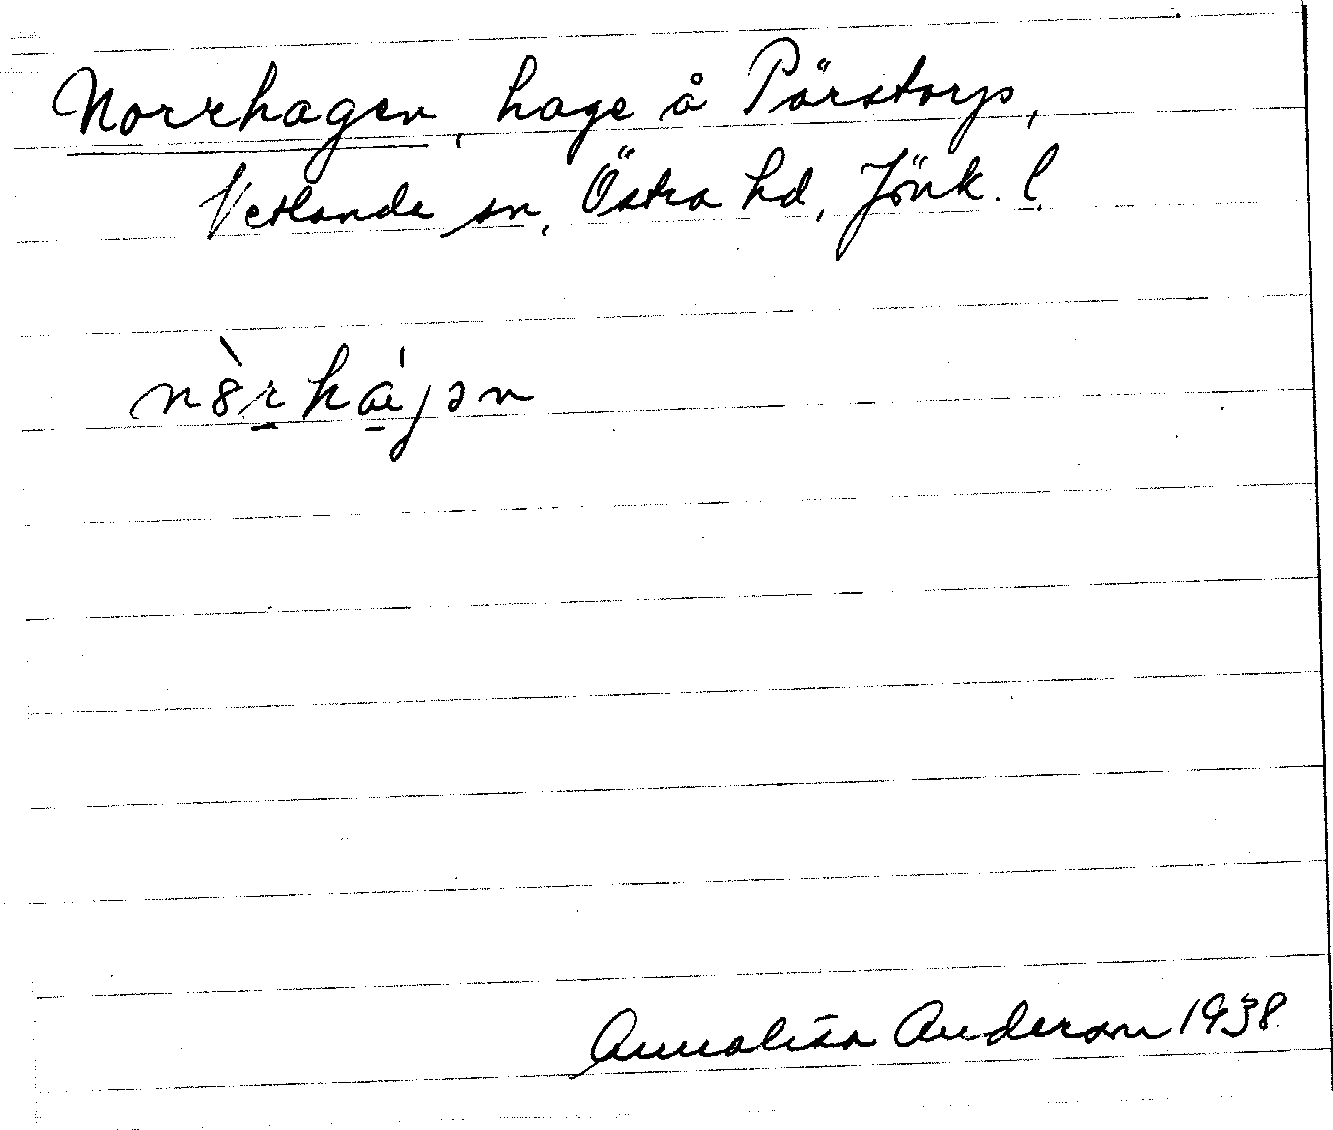 Norrhagen, hage å Pärstorp,
Vetlanda sn, Östra hd, Jönk. l.
nò̀rhájən
Annalisa Anderson 1938